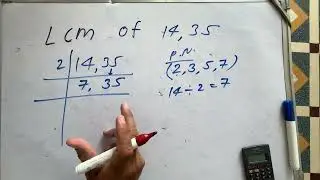 Lcm of 14, 35
2 | 14, 35
7, 35
P.N.
(2, 3, 5, 7)
14 ÷ 2 = 7